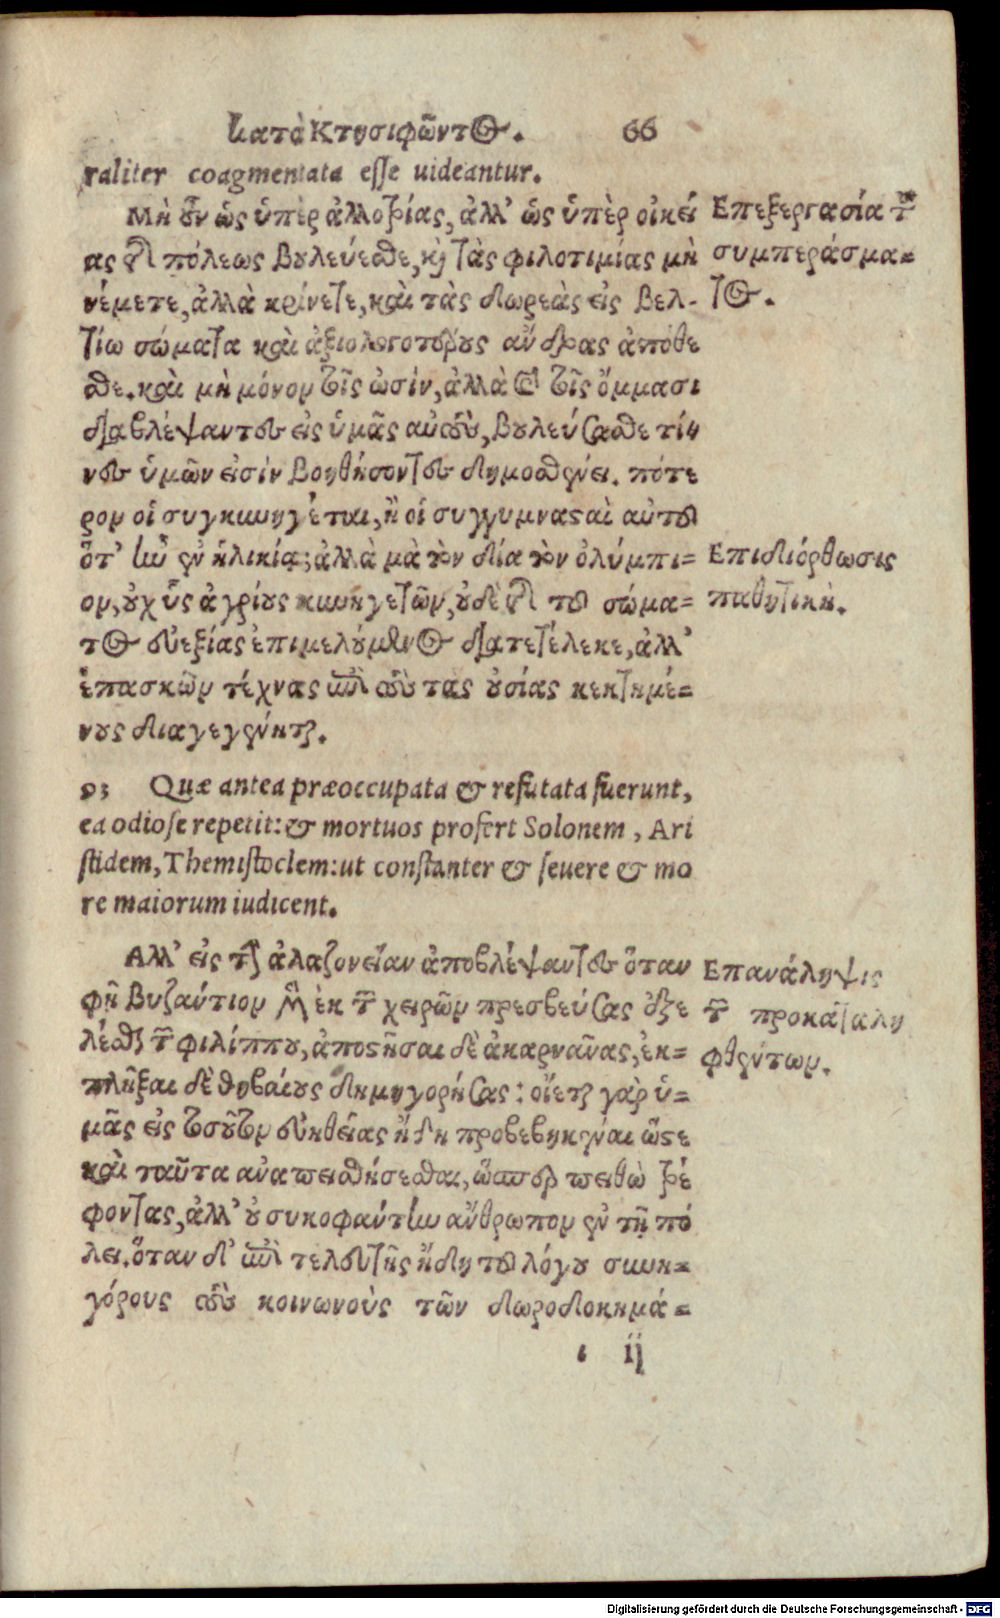 κατὰ Κτησιφῶντος. 66
raliter coagmentata esse uideantur.
Μὴ οὖν ὡς ὑπὲρ ἀλλοτρίας, ἀλλ' ὡς ὑπὲρ οἰκεί
ας τῆς πόλεως βουλεύεσθε, καὶ τὰς φιλοτιμίας μὴ
νέμετε, ἀλλὰ κρίνετε, καὶ τὰς δωρεὰς εἰς βελ-
τίω σώματα καὶ ἀξιολογοτέρους ἄνδρας ἀπόθε
σθε. καὶ μὴ μόνον τοῖς ὠσὶν, ἀλλὰ καὶ τοῖς ὄμμασι
διαβλέψαντες εἰς ὑμᾶς αὐτοὺς, βουλεύσασθε τίν
νες ὑμῶν εἰσὶν βοηθήσοντες δημοσθένει. πότε
ρον οἱ συγκυνηγέται, ἢ οἱ συγγυμνασταὶ αὐτοῦ
ὅτ' ἦν ἐν ἡλικίᾳ; ἀλλὰ μὰ τὸν δία τὸν ὀλύμπι=
ον, οὐχ ὗς ἀγρίους κυνηγετῶν, οὐδὲ τῆς τοῦ σώμα=
τος εὐεξίας ἐπιμελούμενος διατετέλεκε, ἀλλ'
ἐπασκῶν τέχνας ἐπὶ τοὺς τὰς οὐσίας κεκτημέ=
νους διαγεγένηται.
Επεξεργασία τοῦ
συμπεράσμα=
τος.
Επιδιόρθωσις
παθητική.
Quæ antea præoccupata & refutata fuerunt,
ea odiose repetit: & mortuos profert Solonem, Ari
stidem, Themistoclem: ut constanter & seuere & mo
re maiorum iudicent.
Αλλ' εἰς τὴν ἀλαζονείαν ἀποβλέψαντες ὅταν
φῇ Βυζάντιον μὲν ἐκ τῶν χειρῶν πρεσβεύσας ἐξε
λέσθαι τῶν φιλίππου, ἀποστῆσαι δὲ ἀκαρνᾶνας, ἐκ=
πλῆξαι δὲ θηβαίους δημηγορήσας: οἴεται γὰρ ὑ=
μᾶς εἰς τοσοῦτον εὐηθείας ἤδη προβεβηκέναι ὥστε
καὶ ταῦτα ἀναπεισθήσεσθαι, ὥσπερ πειθὼ τρέ
φοντας, ἀλλ' οὐ συκοφάντην ἄνθρωπον ἐν τῇ πό
λει. ὅταν δ' ἐπὶ τελευτῆς ἤδη τοῦ λόγου συνη=
γόρους τοὺς κοινωνοὺς τῶν δωροδοκημά=
Επανάληψις
τῶν προκαταλη
φθέντων.
ι ij
Digitalisierung gefördert durch die Deutsche Forschungsgemeinschaft - DFG